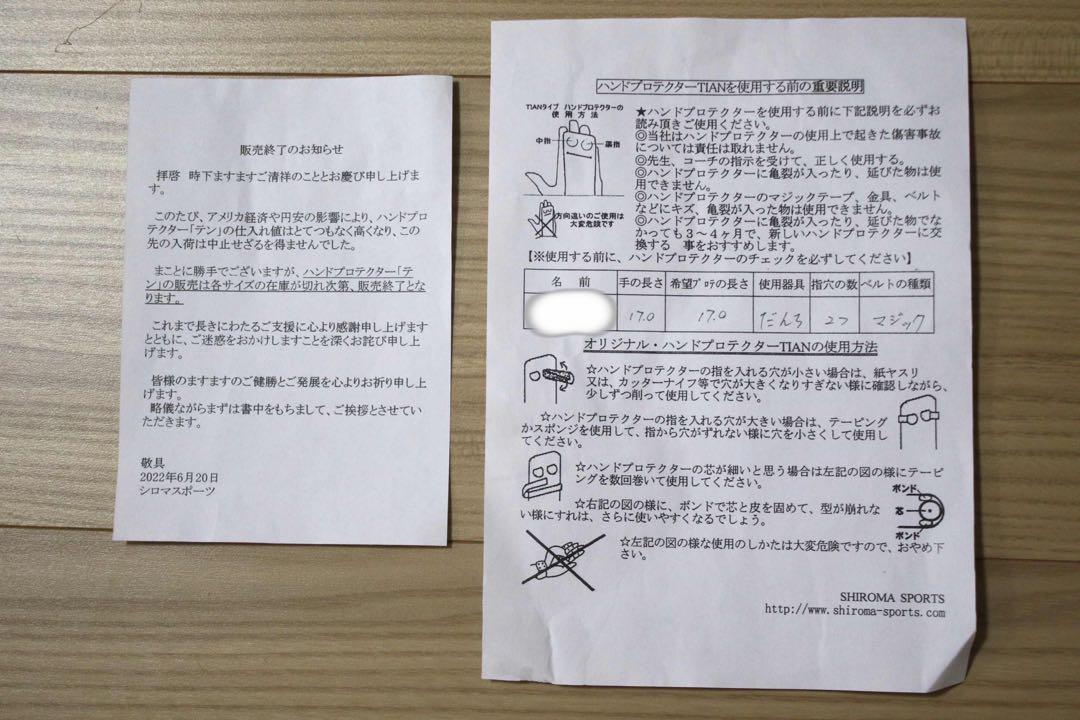 販売終了のお知らせ
拝啓 時下ますますご清祥のこととお慶び申し上げま
す。
このたび、アメリカ経済や円安の影響により、ハンドプロ
テクター「テン」の仕入れ値はとてつもなく高くなり、この
先の入荷は中止せざるを得ませんでした。
まことに勝手でございますが、ハンドプロテクター「テ
ン」の販売は各サイズの在庫が切れ次第、販売終了とな
ります。
これまで長きにわたるご支援に心より感謝申し上げます
とともに、ご迷惑をおかけしますことを深くお詫び申し上
げます。
皆様のますますのご健勝とご発展を心よりお祈り申し上
げます。
略儀ながらまずは書中をもちまして、ご挨拶とさせてい
ただきます。
敬具
2022年6月20日
シロマスポーツ
ハンドプロテクターTIANを使用する前の重要説明
TIANタイプ ハンドプロテクターの
使用方法
中指
薬指
方向違いのご使用は
大変危険です
★ハンドプロテクターを使用する前に下記説明を必ずお
読み頂きご使用ください。
◎当社はハンドプロテクターの使用上で起きた傷害事故
については責任は取れません。
◎先生、コーチの指示を受けて、正しく使用する。
◎ハンドプロテクターに亀裂が入ったり、延びた物は使
用できません。
◎ハンドプロテクターのマジックテープ、金具、ベルト
などにキズ、亀裂が入った物は使用できません。
◎ハンドプロテクターに亀裂が入ったり、延びた物でな
かっても3~4ヶ月で、新しいハンドプロテクターに交
換する 事をおすすめします。
【※使用する前に、ハンドプロテクターのチェックを必ずしてください】
名 前 手の長さ 希望プロテの長さ 使用器具 指穴の数 ベルトの種類
17.0 17.0 だんち 2つ マジック
オリジナル・ハンドプロテクターTIANの使用方法
☆ハンドプロテクターの指を入れる穴が小さい場合は、紙ヤスリ
又は、カッターナイフ等で穴が大きくなりすぎない様に確認しながら、
少しずつ削って使用してください。
☆ハンドプロテクターの指を入れる穴が大きい場合は、テーピング
かスポンジを使用して、指から穴がずれない様に穴を小さくして使用し
てください。
☆ハンドプロテクターの芯が細いと思う場合は左記の図の様にテーピ
ングを数回巻いて使用してください。
☆右記の図の様に、ボンドで芯と皮を固めて、型が崩れな
い様にすれは、さらに使いやすくなるでしょう。
ボンド
芯
ボンド
☆左記の図の様な使用のしかたは大変危険ですので、おやめ下
さい。
SHIROMA SPORTS
http://www.shiroma-sports.com